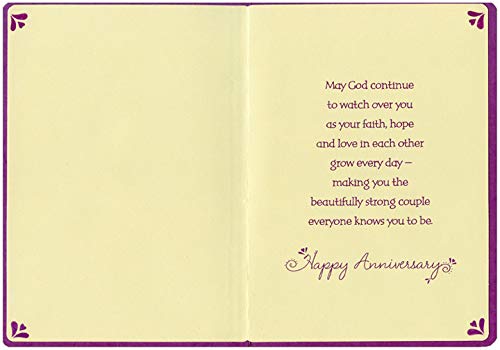 May God continue
to watch over you
as your faith, hope
and love in each other
grow every day –
making you the
beautifully strong couple
everyone knows you to be.
Happy Anniversary